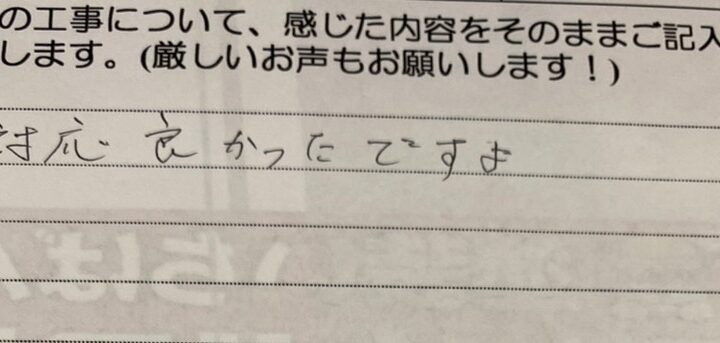 の工事について、感じた内容をそのままご記入
します。(厳しいお声もお願いします！)
対応 良かったですよ